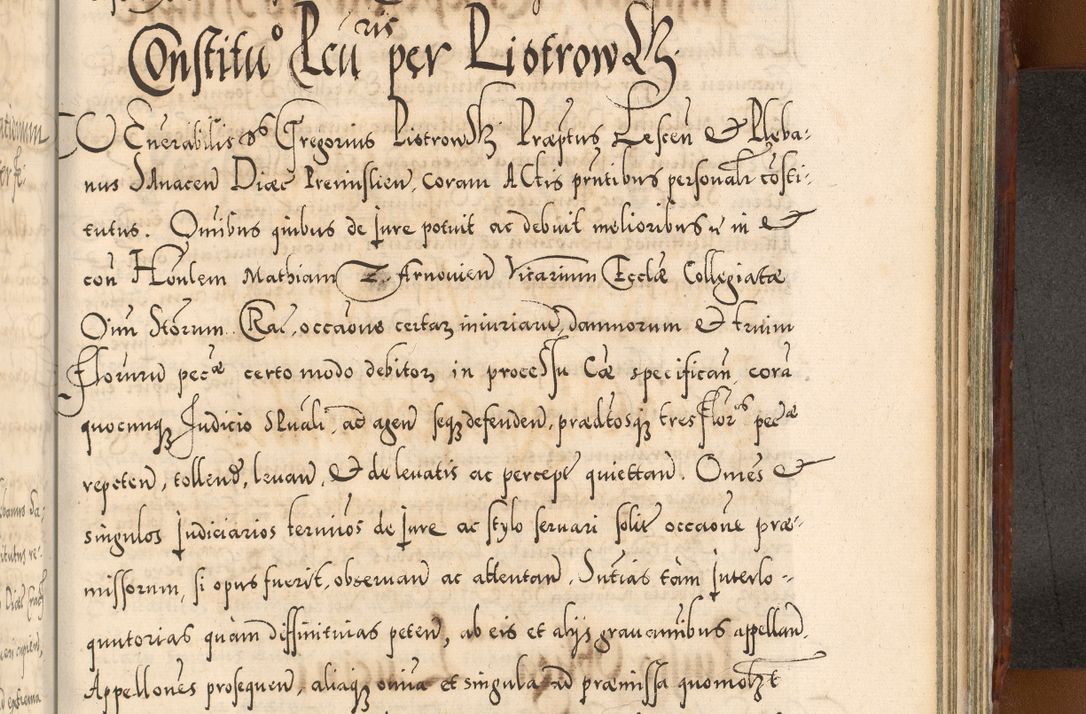 Constitu° Pcuris per Piotrowsk.
Venerabilis ds Gregorius Piotrowsk. Præptus Lescen̄ & Pleba-
nus Sanacen̄ Diæc Premislien̄, coram Actis pñtibus personalr cõsti-
tutus. Om̃ibus quibus de Jure potuit ac debuit melioribus in &
con Honlem Mathiam Tarnovien̄ Vicarium Ecclæ Collegiatæ
Oim̃ Storum. Rae, occaõe certaz iniuriarũ, damnorum & trium
Florenũ pecæ certo modo debitoz in processu Cæ specifican̄, corã
quocunqz Judicio sptuali, ad agen̄ seqz defenden̄, prædctosqz tres Flor. pecæ
repeten̄, tollend̄, levan̄, & de levatis ac percept quiettan̄. Omēs &
singulos Judiciarios terminos de Jure ac stylo servari solit occaõe præ-
missorum, si opus fuerit, observan̄ ac attentan̄, Sntias tam Interlo-
qutorias quam diffinitivas peten̄, ab eis et alys gravaminibus appellan̄.
Appellones prosequen̄, aliaqz omia et singula ad præmissa quomolzt